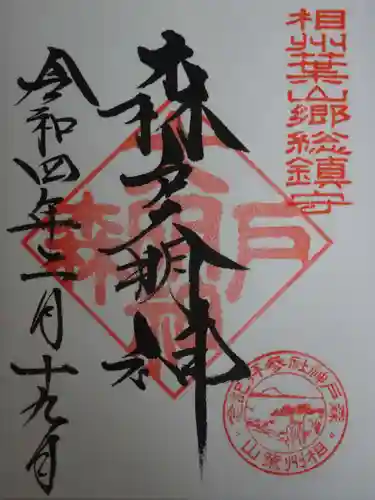 相州葉山郷総鎮守
森戸明神
令和四年二月十九日
森戸神社参拝記念
相州葉山